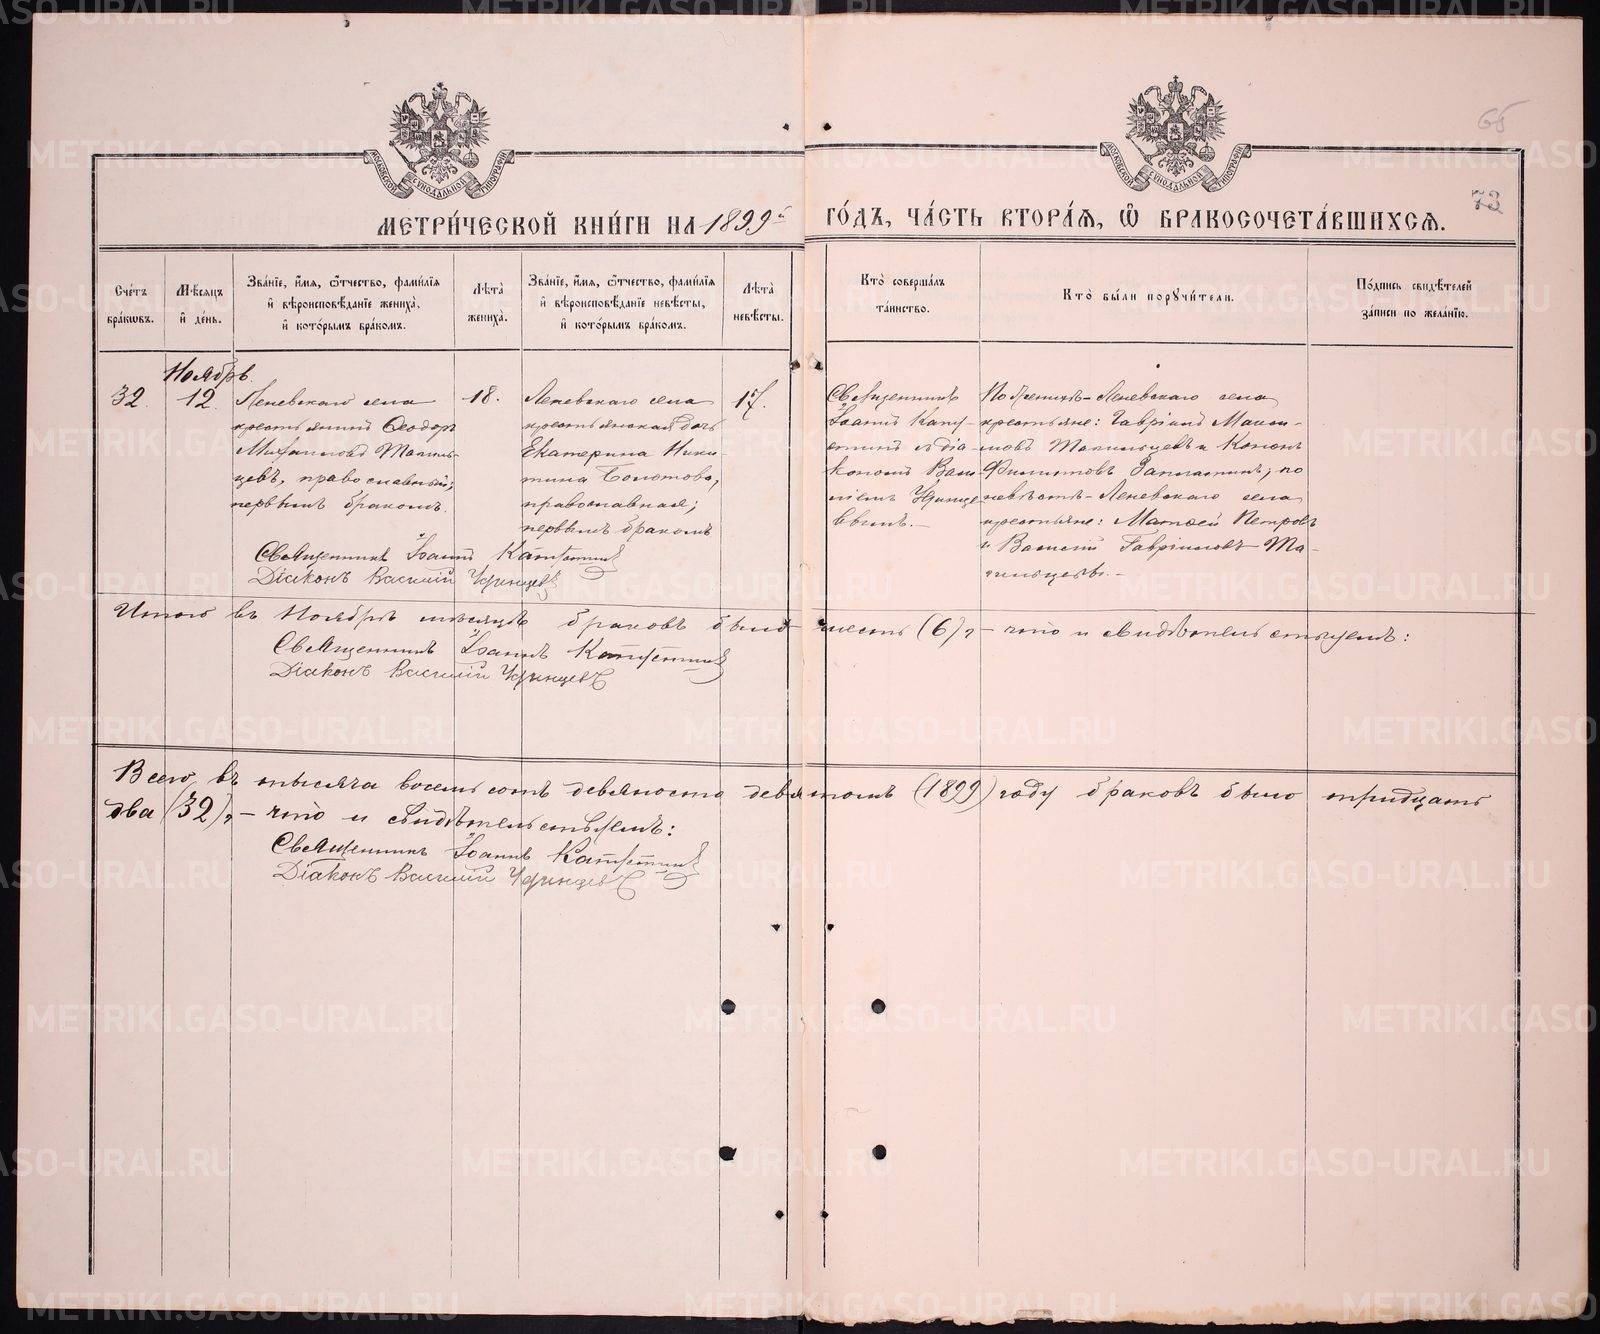 65
73
МОСКОВСКОЙ СѴНОДАЛЬНОЙ ТИПОГРАФІИ
МОСКОВСКОЙ СѴНОДАЛЬНОЙ ТИПОГРАФІИ
МЕТРИ́ЧЕСКОЙ КНИ́ГИ НА 1899й ГО́ДЪ, ЧА́СТЬ ВТОРА́Ѧ, Ѽ БРАКОСОЧЕТА́ВШИХСѦ.
Сче́тъ бра́кѡвъ.
Мѣ́сѧцъ и҆ де́нь.
Зва́нїе, и҆́мѧ, ѻ҆́тчество, фами́лїѧ
и҆ вѣроисповѣ́данїе жениха̀,
и҆ кото́рымъ бра́комъ.
Лѣ́та жениха̀.
Зва́нїе, и҆́мѧ, ѻ҆́тчество, фами́лїѧ
и҆ вѣроисповѣ́данїе невѣ́сты,
и҆ кото́рымъ бра́комъ.
Лѣ́та невѣ́сты.
Кто̀ соверша́лъ та́инство.
Кто̀ бы́ли порꙋчи́тели.
По́дпись свидѣ́телей за́писи по жела́нїю.
Ноябрь.
32.
12.
Леневскаго села
крестьянинъ Ѳеодоръ
Михаиловъ Тагиль-
цевъ, православный;
первымъ бракомъ.
18.
Леневскаго села
крестьянская дочь
Екатерина Ники-
тина Болотова,
православная;
первымъ бракомъ
17.
Священникъ
Іоаннъ Капу-
стинъ съ діа-
кономъ Васи-
ліемъ Удинце-
вымъ.-
По женихѣ-Леневскаго села
крестьяне: Гавріилъ Макси-
мовъ Тагильцевъ и Конон
Филиповъ Заплатинъ; по
невѣстѣ-Леневскаго села
крестьяне: Матѳей Петровъ
и Василій Гавріиловъ Та-
гильцевы.-
Священникъ Іоаннъ Капустинъ
Діаконъ Василій Удинцевъ
Итого въ Ноябрѣ мѣсяцѣ браковъ было шесть (6), - что и свидѣтельствуемъ:
Священникъ Іоаннъ Капустинъ
Діаконъ Василій Удинцевъ
Всего въ тысяча восемьсотъ девяносто девятомъ (1899) году браковъ было тридцать
два (32), - что и свидѣтельствуемъ:
Священникъ Іоаннъ Капустинъ
Діаконъ Василій Удинцевъ
METRIKI.GASO-URAL.RU